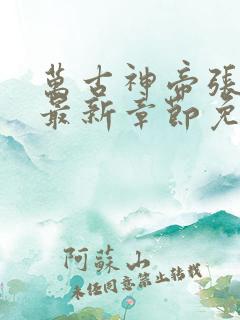 萬古神帝張
最新章節免
阿蘇山
未经同意禁止转载